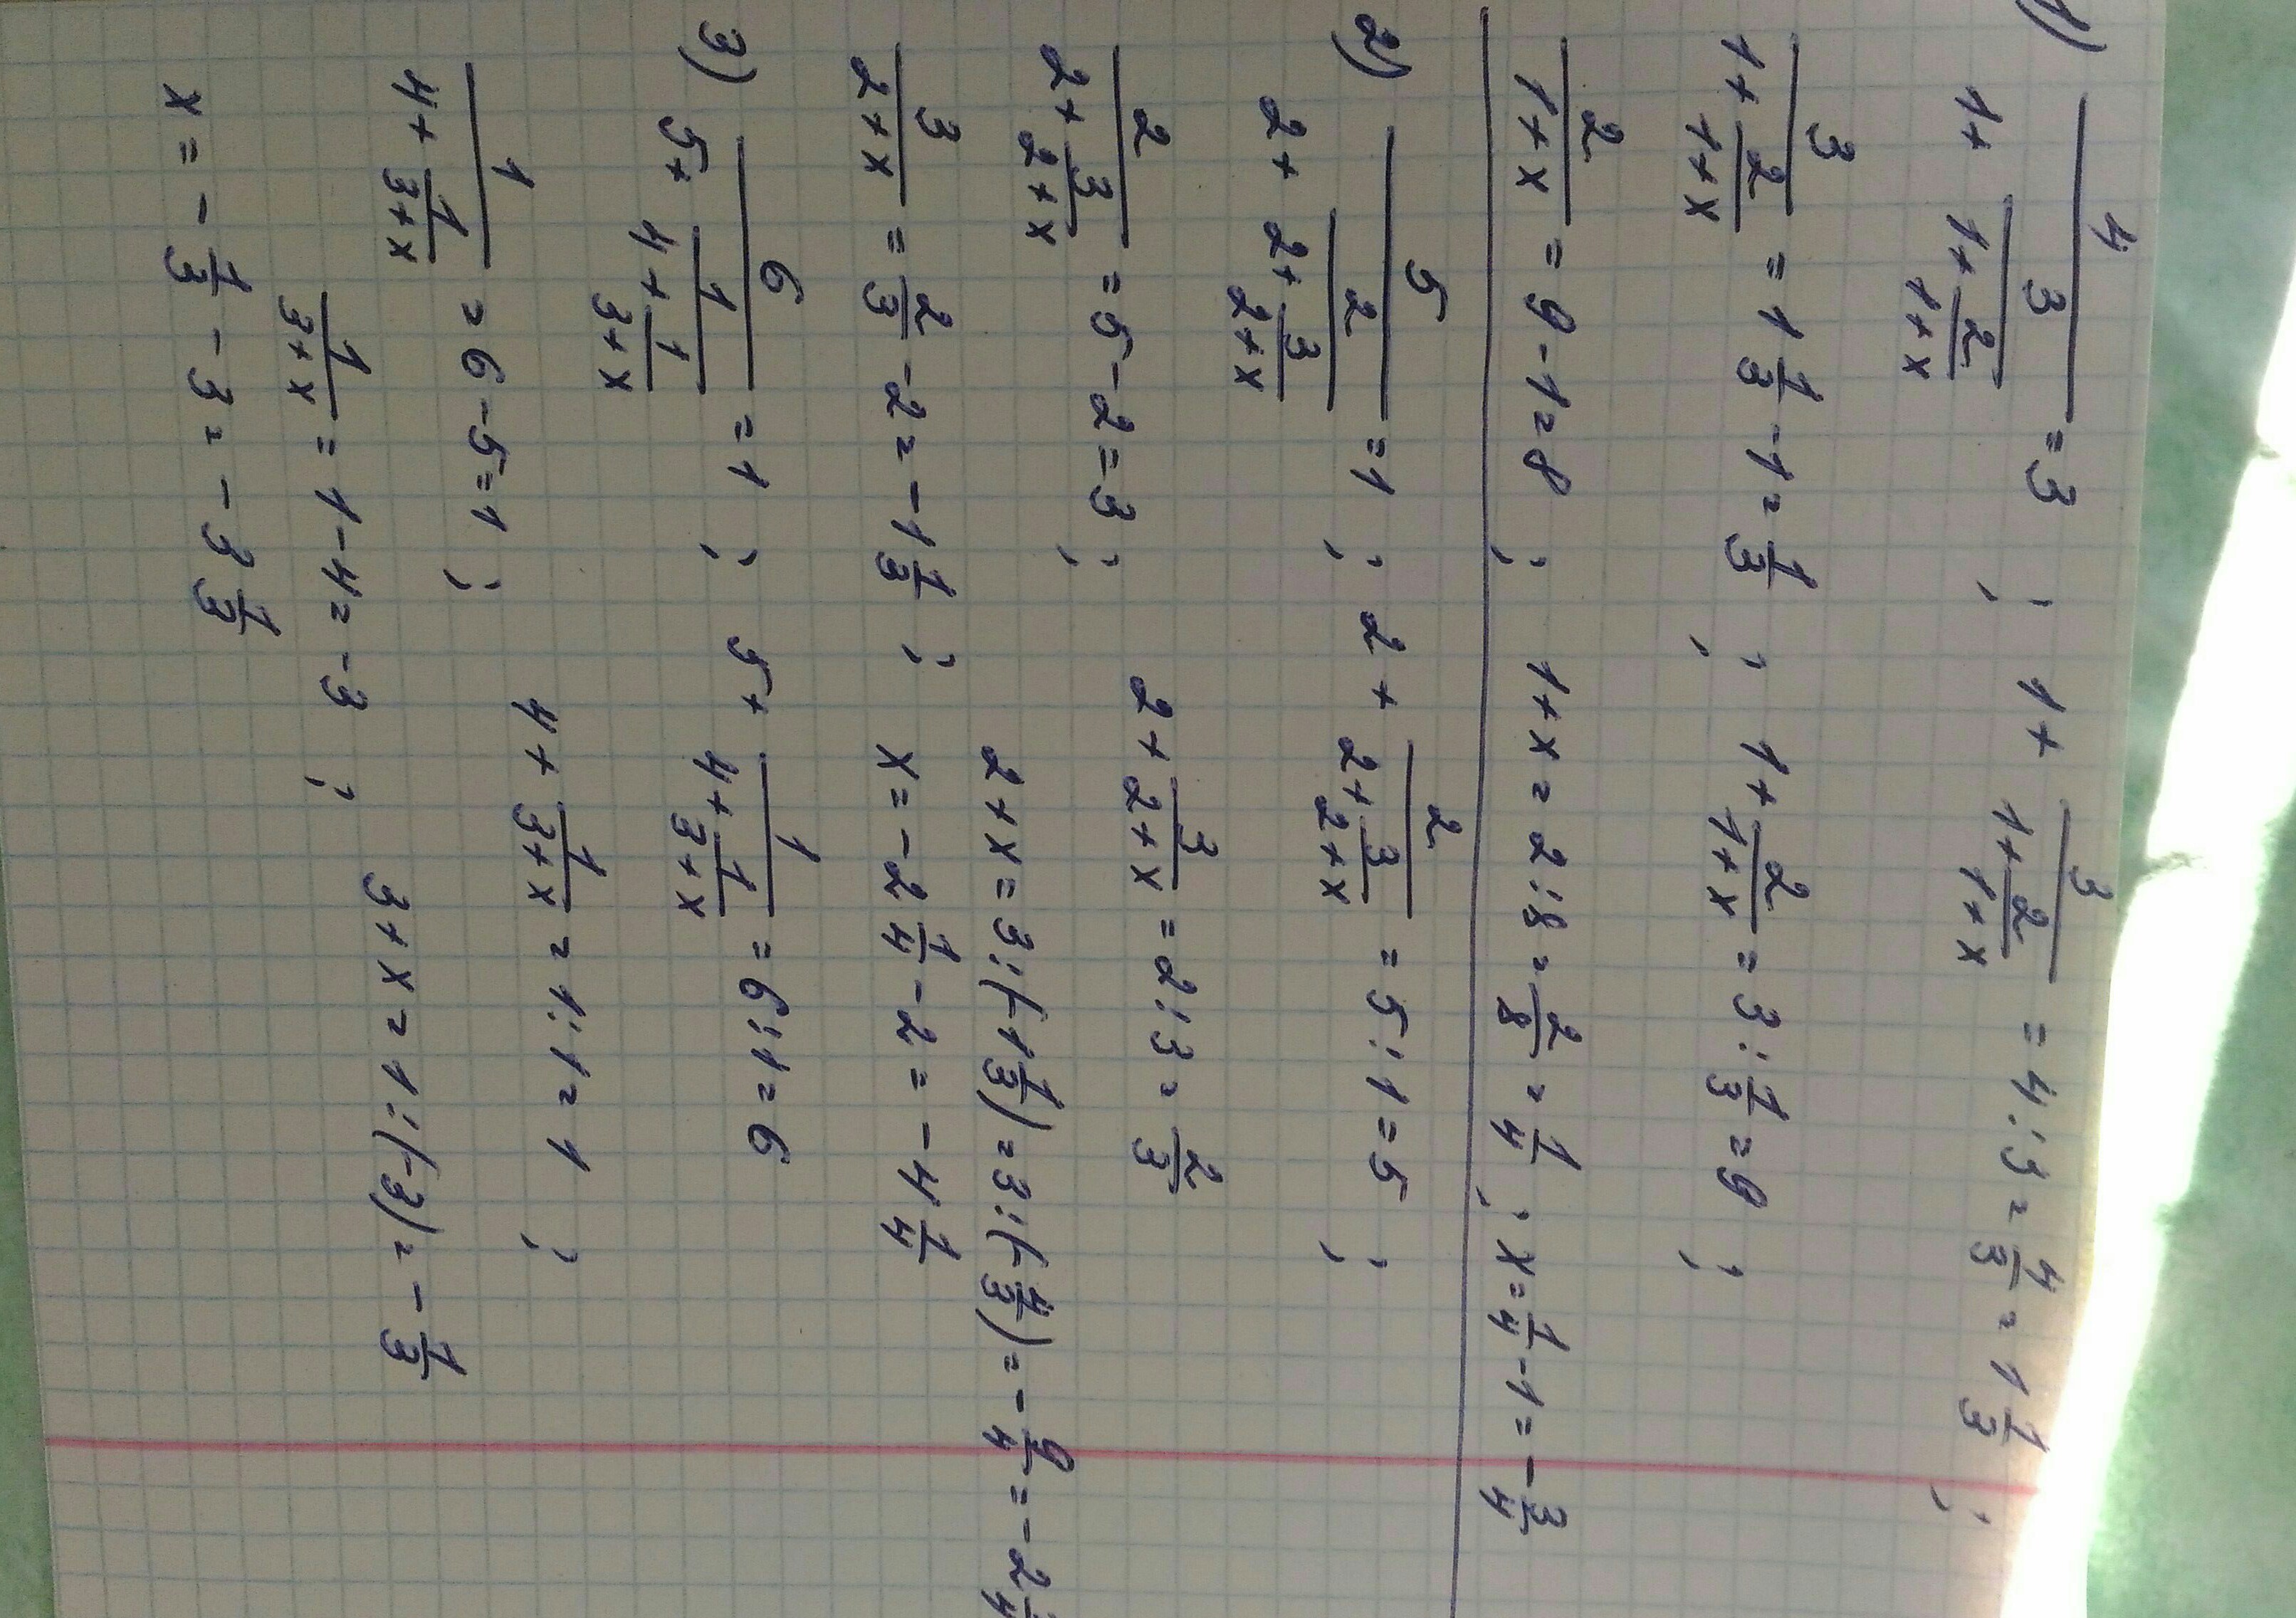 1) 4/(1+3/(1+2/(1+x))) = 3 ; 1+3/(1+2/(1+x)) = 4:3 = 4/3 = 1 1/3 ;
3/(1+2/(1+x)) = 1 1/3 - 1 = 1/3 ; 1+2/(1+x) = 3:1/3 = 9 ;
2/(1+x) = 9-1 = 8 ; 1+x = 2:8 = 2/8 = 1/4 ; x = 1/4 - 1 = -3/4
2) 5/(2+2/(2+3/(2+x))) = 1 ; 2+2/(2+3/(2+x)) = 5:1 = 5 ;
2/(2+3/(2+x)) = 5-2 = 3 ; 2+3/(2+x) = 2:3 = 2/3
3/(2+x) = 2/3 - 2 = -1 1/3 ; 2+x = 3:(-1 1/3) = 3:(-4/3) = -9/4 = -2 1/4
x = -2 1/4 - 2 = -4 1/4
3) 6/(5+1/(4+1/(3+x))) = 1 ; 5+1/(4+1/(3+x)) = 6:1 = 6
1/(4+1/(3+x)) = 6-5 = 1 ; 4+1/(3+x) = 1:1 = 1 ;
1/(3+x) = 1-4 = -3 ; 3+x = 1:(-3) = -1/3
x = -1/3 - 3 = -3 1/3